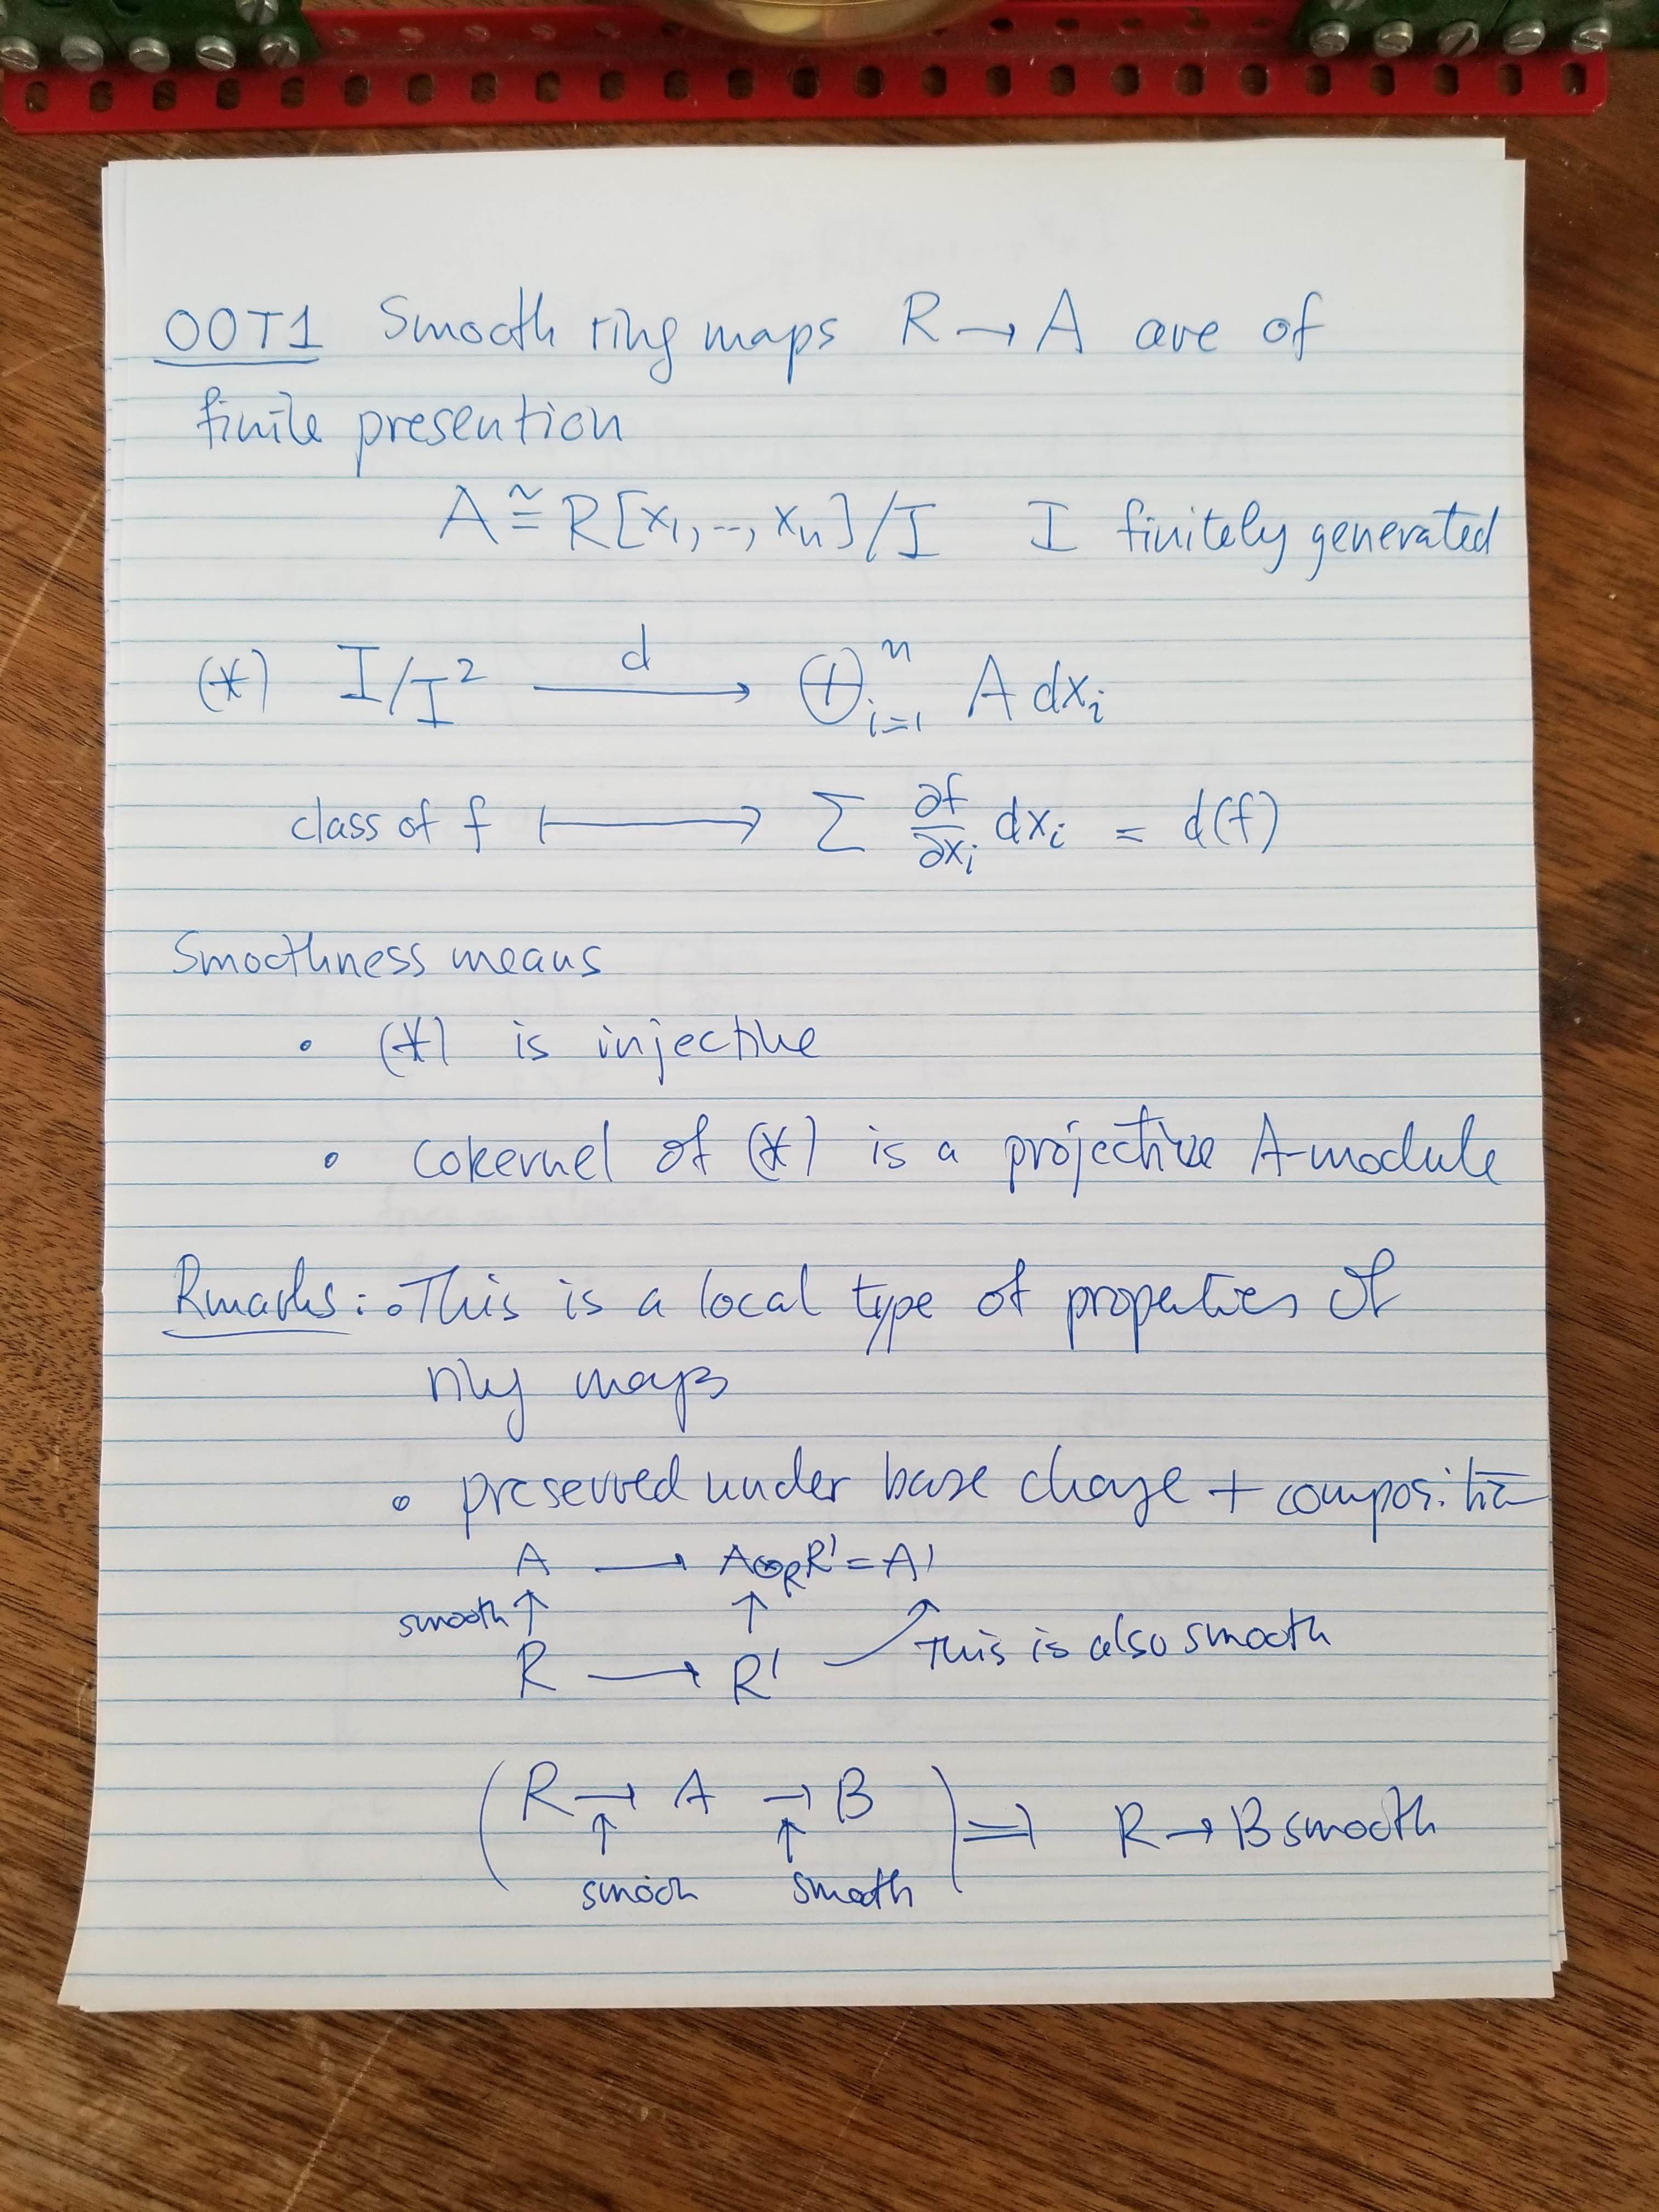 00T1 Smooth ring maps R → A are of
finite presention
A ≅ R[x₁, --, xₙ]/I I finitely generated
(*) I/I² —d→ ⊕ⁿᵢ₌₁ A dxᵢ
class of f ⟼ Σ ∂f/∂xᵢ dxᵢ = d(f)
Smoothness means
• (*) is injective
• cokernel of (*) is a projective A-module
Rmarks: • This is a local type of properties of
ring maps
• preserved under base change + composition
A → A⊗_R R' = A'
smooth ↑ ↑
R → R' This is also smooth
(R → A → B) ⟹ R → B smooth
↑ ↑
smooth smooth